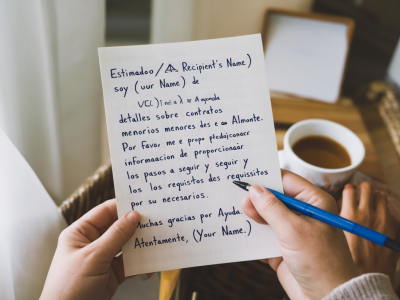 Estimadoo / Recipient's Name)
soy (uur Name) de
Agenda
detalles sobre contratos
menorios menores des e en Almonte.
Por Favor me e propo
informaacion de proporcionaár
los pasos a seguir y seguir y
los los requistos des requisitos
por su necesarios.
Muchas gracias por Ayuda.
Atentamente, (Your Name.)